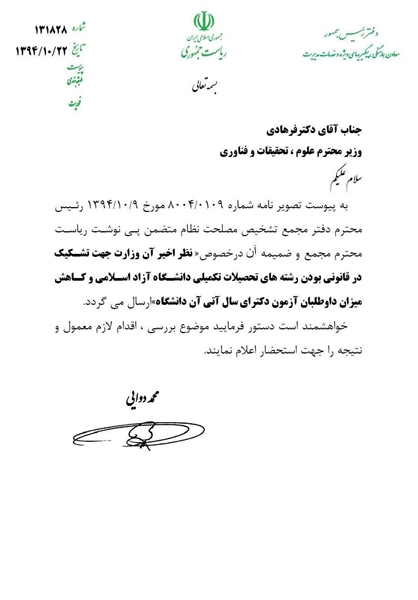 دفتر رئیس جمهور
معاون هماهنگی، پیگیریهای ویژه و خدمات مدیریت
جمهوری اسلامی ایران
ریاست جمهوری
شماره ۱۳۱۸۲۸
تاریخ ۱۳۹۴/۱۰/۲۲
پیوست
طبقه‌بندی
فوریت
بسمه تعالی
جناب آقای دکتر فرهادی
وزیر محترم علوم ، تحقیقات و فناوری
سلام علیکم
به پیوست تصویر نامه شماره ۸۰۰۴/۰۱۰۹ مورخ ۱۳۹۴/۱۰/۹ رئیس
محترم دفتر مجمع تشخیص مصلحت نظام متضمن پی نوشت ریاست
محترم مجمع و ضمیمه آن درخصوص«نظر اخیر آن وزارت جهت تشکیک
در قانونی بودن رشته های تحصیلات تکمیلی دانشگاه آزاد اسلامی و کاهش
میزان داوطلبان آزمون دکترای سال آتی آن دانشگاه»ارسال می گردد.
خواهشمند است دستور فرمایید موضوع بررسی ، اقدام لازم معمول و
نتیجه را جهت استحضار اعلام نمایند.
محمد دوایی